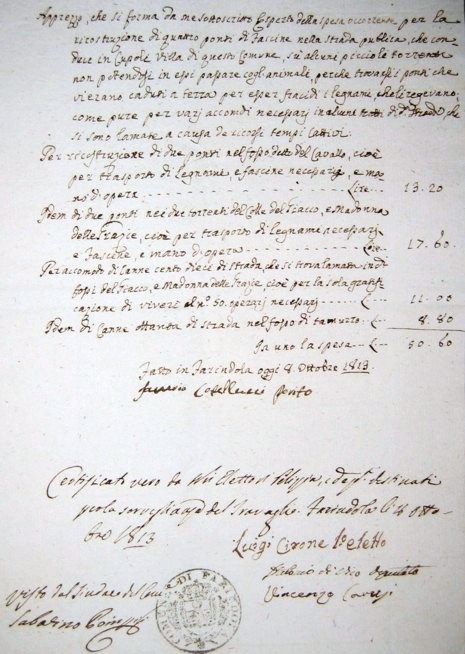 Apprezzo, che si forma da me sottoscritto Esperto della spesa occorrente per la
ricostruzione di quattro ponti di Fascine nella strada publica, che con-
duce in Cupoli Villa di questo Comune, su alcuni piccioli torrenti
non potendosi in essi passare cogl'animali, perche trovansi i ponti che
vi erano caduti a terra per esser fracidi i legnami, che li reggevano,
come pure per varj accomodi necessarj in alcuni tratti di d.ª strada, che
si sono lamate a causa de scorsi tempi cattivi.
Per ricostruzione di due ponti nel fosso detto del Cavallo, cioè
per trasporto di legname, e fascine necessarie, e ma-
no d'opera Lire 13.20
Idem di due ponti nei due torrenti del Colle del Fiacco, e Madonna
delle Grazie, cioè per trasporto di legname necessarj
e Fascine, e mano d'opera Lire 17.60
Per accomodo di Canne cento dieci di strada, che si trova lamata in d.
fossi del Fiacco, e Madonna delle Grazie, cioè per la sola gratifi-
cazione di viveri al n.º 50. operarj necessarj L 11.00
Idem di Canne ottanta di strada nel fosso di tamurro L 8.80
Fa uno la spesa L 50.60
Fatto in Farindola oggi 8 Ottobre 1813
Colellucci Perito
Certificati vero da Noi Eletto di Polizia, e destinati
per la sorveglianza del Travaglio. Farindola li Otto-
bre 1813
Luigi Cirone P.º Eletto
Deputato
Vincenzo
Visto dal Sindaco del
Sabatino
COMUNE DI FARINDOLA